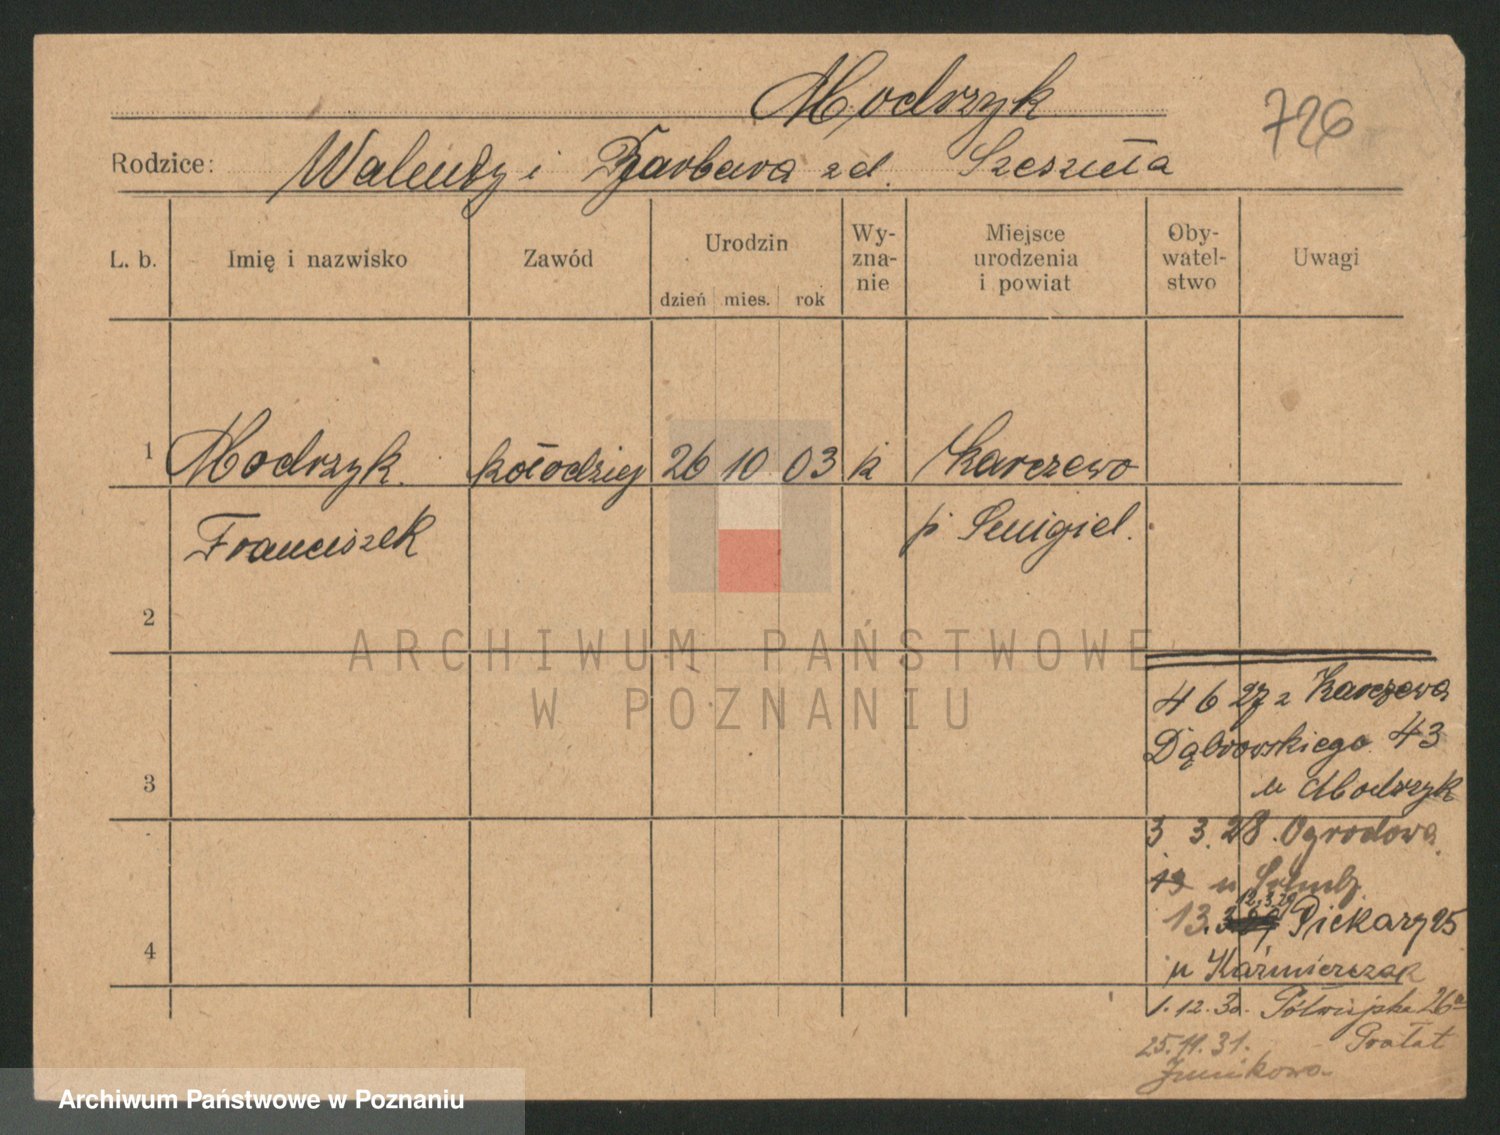 Modrzyk
726
Rodzice: Walenty i Barbara zd. Szeszuła
L. b. Imię i nazwisko Zawód Urodzin dzień mies. rok Wy-zna-nie Miejsce urodzenia i powiat Oby-watel-stwo Uwagi
1 Modrzyk kołodziej 26 10 03 k Karczewo
Franciszek p. Śmigiel.
2
ARCHIWUM PAŃSTWOWE
W POZNANIU
4 6 27 z Karczewa
Dąbrowskiego 43
3
u Modrzyk
3 3. 28. Ogrodowa
19 u
12.3.29
13. 3. Piekary 25
4
u Kaźmierczak
1. 12. 30. Półwiejska 26a
Prałat
25. 11. 31.
Junikowo
Archiwum Państwowe w Poznaniu